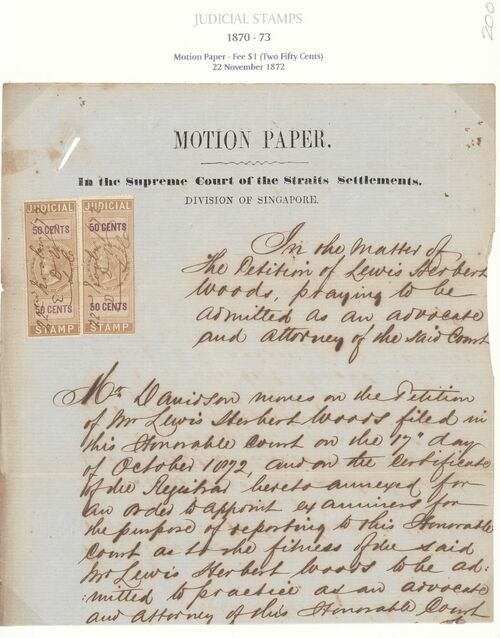 JUDICIAL STAMPS
1870 - 73
Motion Paper - Fee $1 (Two Fifty Cents)
22 November 1872
200
MOTION PAPER.
In the Supreme Court of the Straits Settlements.
DIVISION OF SINGAPORE.
JUDICIAL
50 CENTS
50 CENTS
STAMP
JUDICIAL
50 CENTS
50 CENTS
STAMP
In the Matter of
the Petition of Lewis Herbert
Woods, praying to be
admitted as an advocate
and attorney of the said Court
Mr Davidson moves on the Petition
of Mr Lewis Herbert Woods filed in
this Honorable Court on the 17th day
of October 1872, and on the Certificate
of the Registrar hereto annexed for
an order to appoint examiners for
the purpose of reporting to this Honorable
Court as to the fitness of the said
Mr Lewis Herbert Woods to be ad:
:mitted to practice as an advocate
and Attorney of this Honorable Court